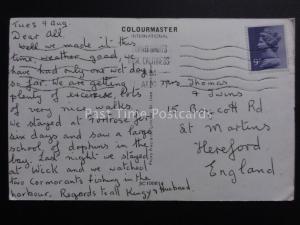 Tues 4 Aug.
Dear All
Well we made it this
time, weather good, we
have had only one wet day
so far. We are getting
plenty of exercise, lots
of very nice walks.
we stayed at Melrose for
six days and saw a large
school of dolphins in the
bay. Last night we stayed
at Wick and we watched
two Cormorants fishing in the
harbour. Regards to all Kingy & Husband.
COLOURMASTER
INTERNATIONAL
9p
Mrs Thomas
& Twins
15 Rd
St Martins
Hereford
England
Past Time Postcards